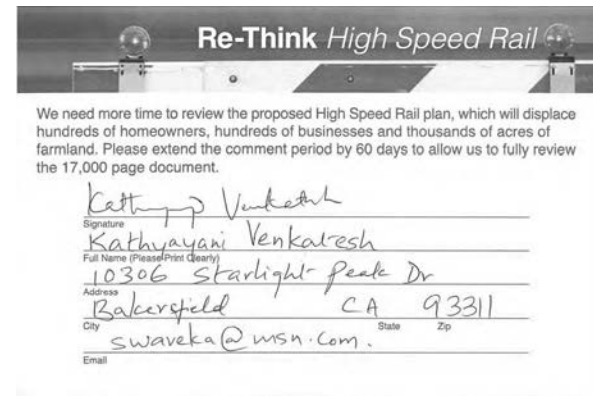 Re-Think High Speed Rail
We need more time to review the proposed High Speed Rail plan, which will displace
hundreds of homeowners, hundreds of businesses and thousands of acres of
farmland. Please extend the comment period by 60 days to allow us to fully review
the 17,000 page document.
Signature
Kathyayani Venkatesh
Full Name (Please Print Clearly)
10306 Starlight Peak Dr
Address
Bakersfield CA 93311
City State Zip
swaveka@msn.com.
Email